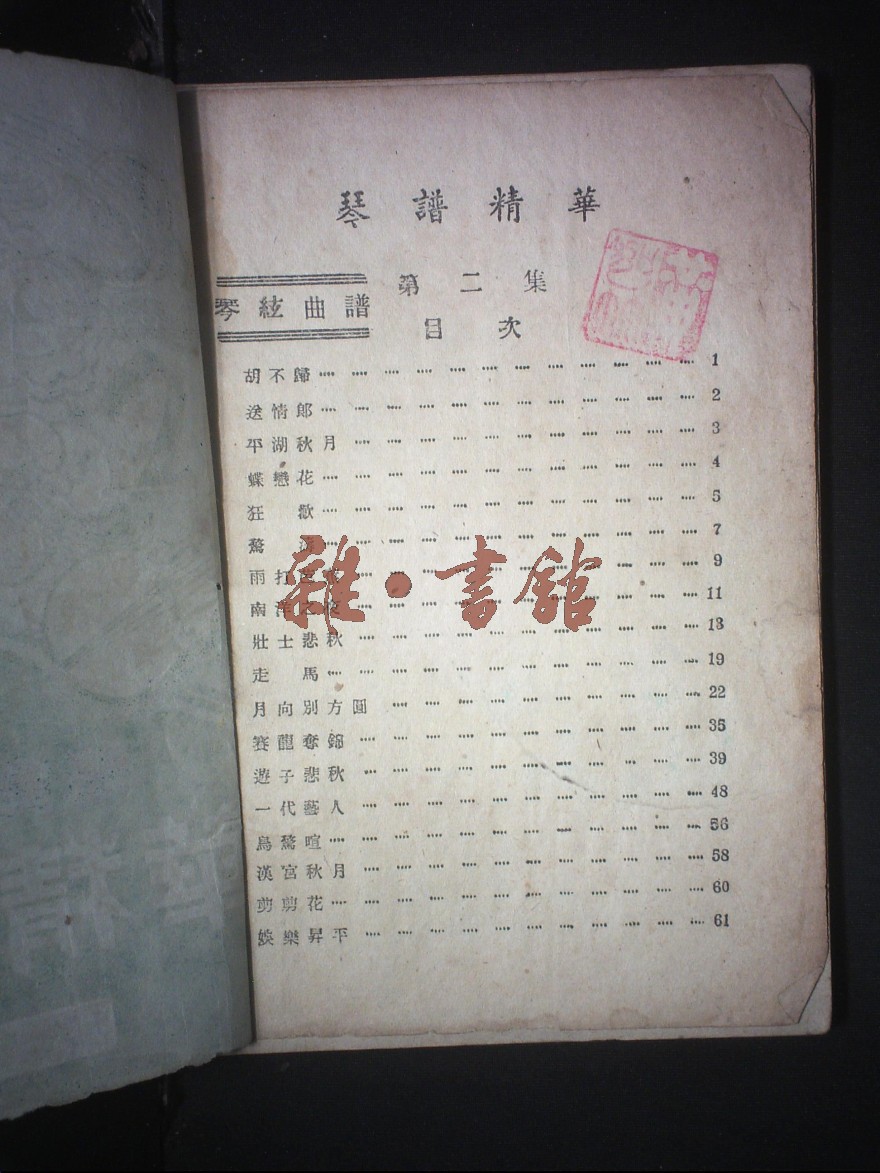 琴譜精華
第二集
琴絃曲譜
目次
胡不歸 1
送情郎 2
平湖秋月 3
蝶戀花 4
狂歡 5
驚 7
雨打 9
南洋之夜 11
壯士悲秋 13
走馬 19
月向別方圓 22
賽龍奪錦 35
遊子悲秋 39
一代藝人 48
鳥驚喧 56
漢宮秋月 58
剪剪花 60
娛樂昇平 61
雜·書館